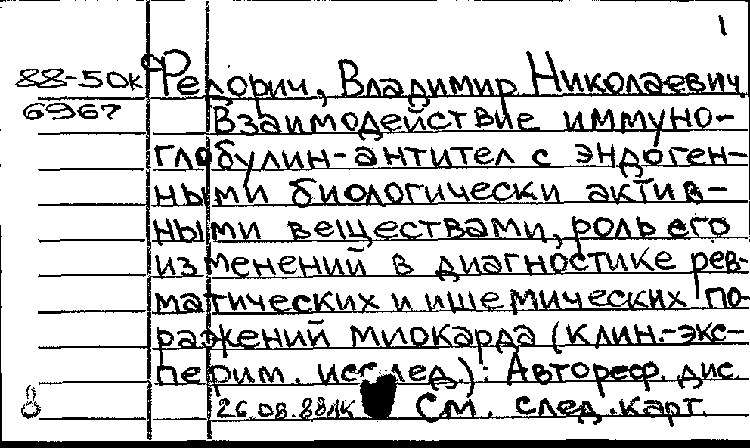 1
88-50к Федорич, Владимир Николаевич
6967 Взаимодействие иммуно-
глобулин-антител с эндоген-
ными биологически актив-
ными веществами, роль его
изменений в диагностике рев-
матических и ишемических по-
ражений миокарда (клин.-экс-
перим. исслед.): Автореф. дис.
8 26.08.88 См. след. карт.